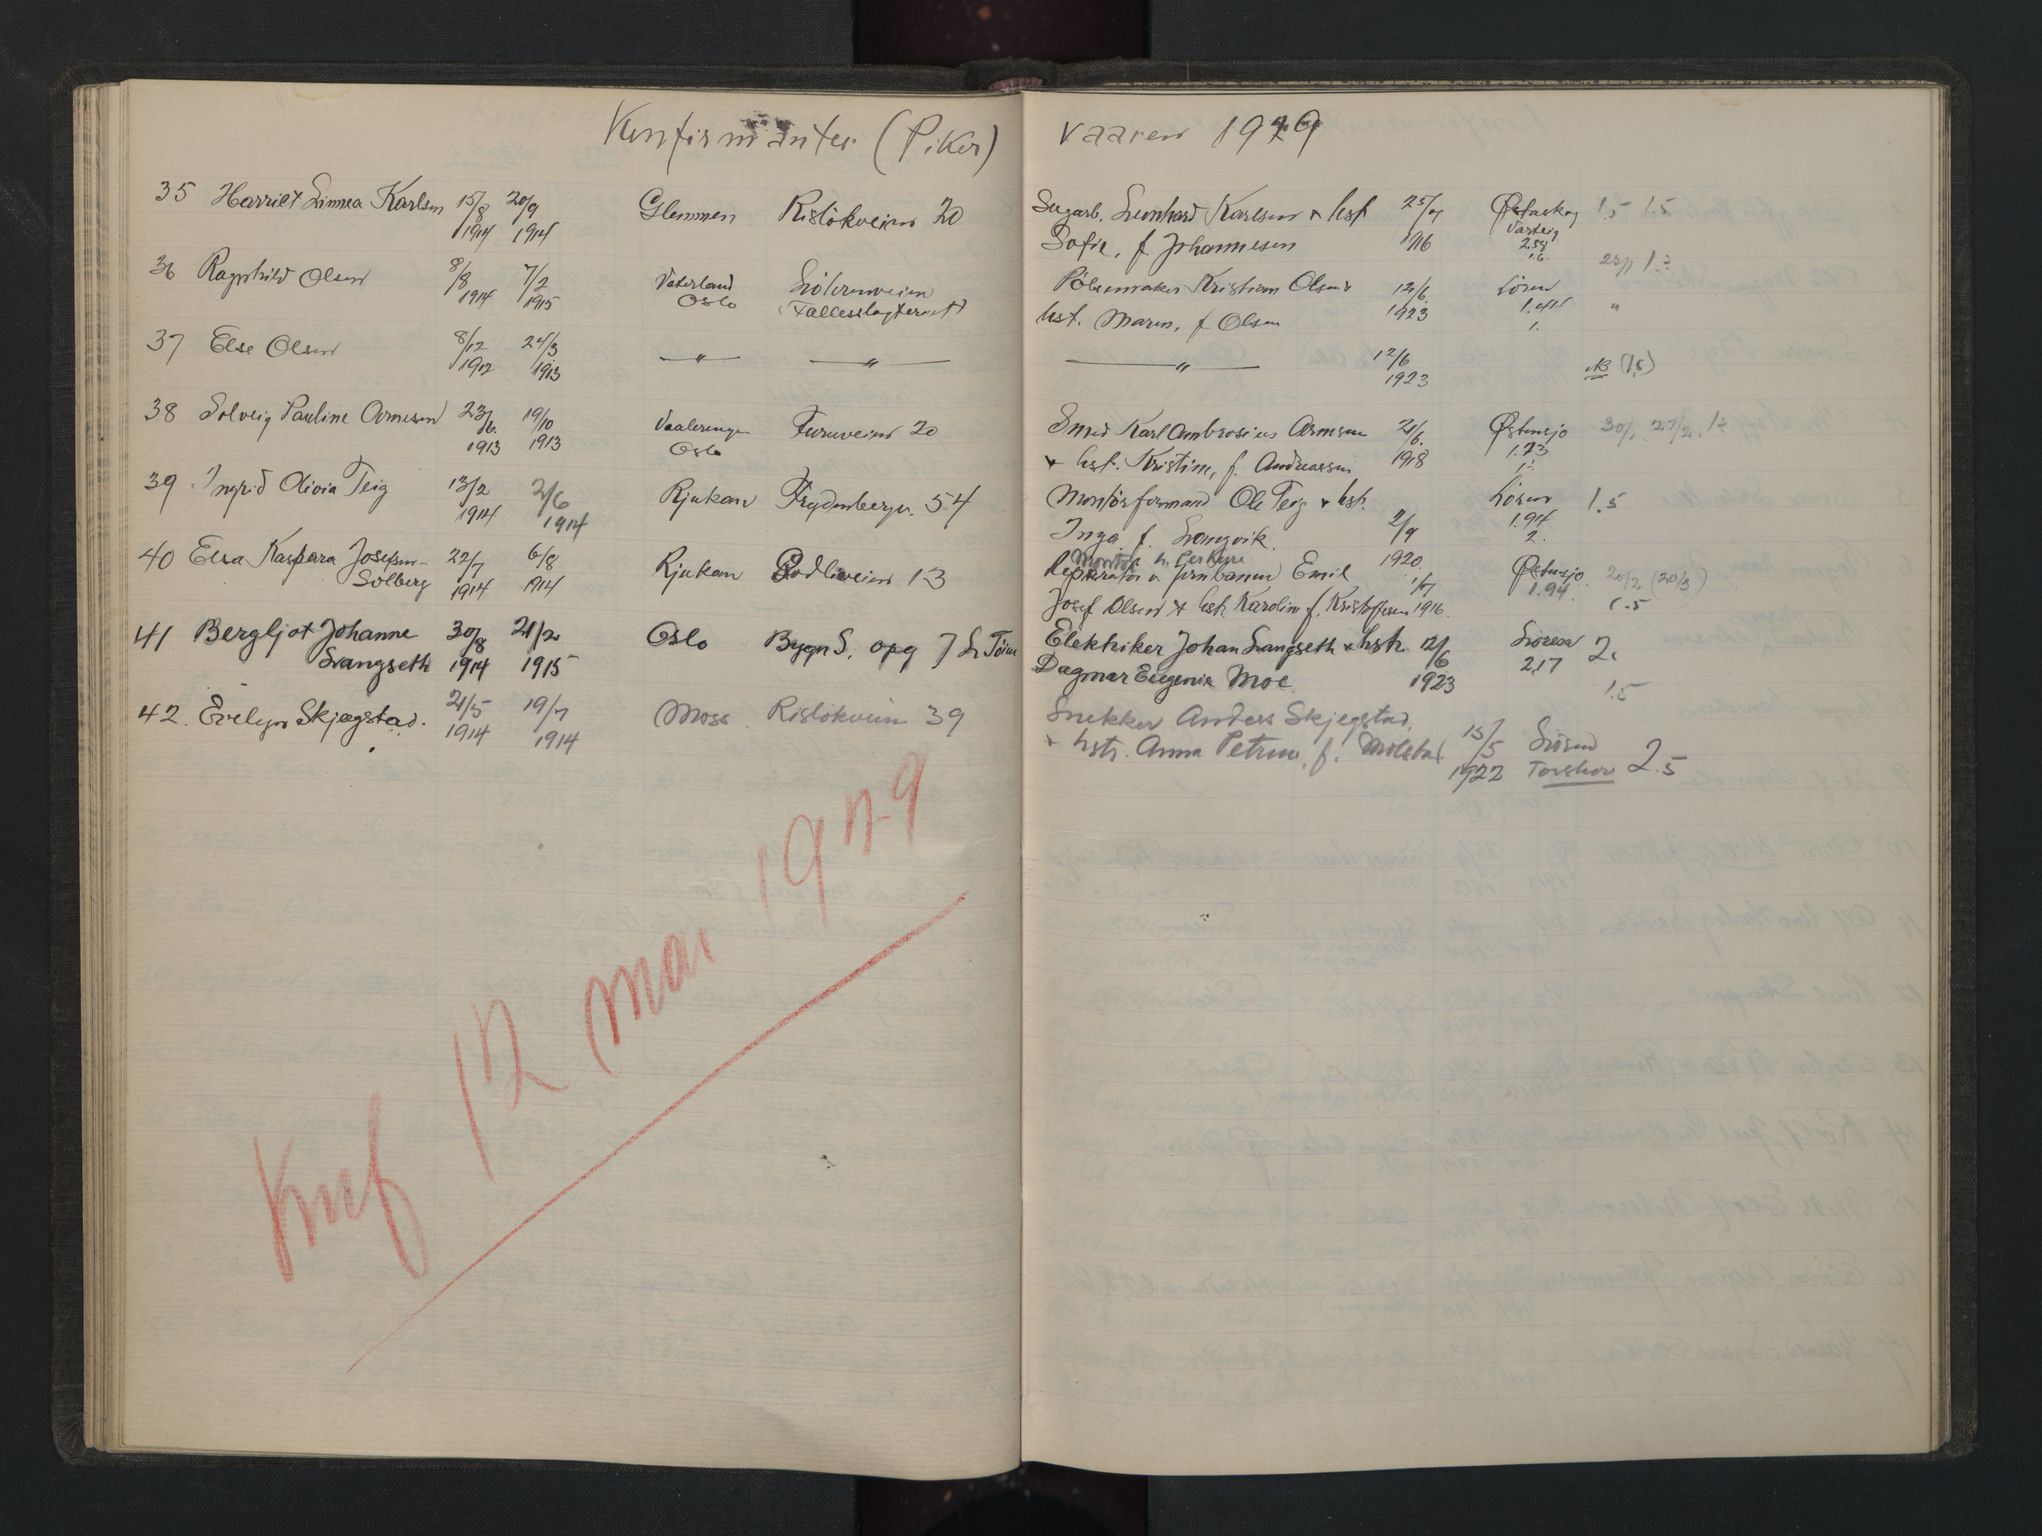 Konfirmanter (Piker) Vaaren 1929
35 Harriet Linnea Karlsen 15/8 1914 20/9 1914 Glemmen Risløkveien 20 Leonhard Karlsen & hst 25/7 1916 1.5 1.5
Sofie, f. Johannesen Varteig 258 16.
36 Ragnhild Olsen 8/8 1914 7/2 1915 Vaterland Oslo Lørenveien (Fællesslagteriet) Pølsemaker Kristian Olsen 12/6 1923 Løren
hst. Maren, f. Olsen 1. "
37 Else Olsen 8/12 1912 24/3 1913 — " — — " — — " — 12/6 1923 NB (1.5)
38 Solveig Pauline Arnesen 23/6. 1913 19/10 1913 Vaalerengen Oslo Furuveien 20 Smed Karl Ambrosius Arnesen 21/6. 1918 Østensjø
& hst. Kristine, f. Andreassen 1.73
39 Ingrid Olivia Teig 13/2 1914 2/6 1914 Rjukan Frydenbergv. 54 Montørformand Ole Teig & hst. 2/9 1920. Løren 1.5
Inga f. Langvik. 1.94 2.
40 Elsa Kaspara Josefsen- Solberg 22/7 1914 6/8 1914 Rjukan Godliaveien 13 Reparatør v. Jernbanen Emil 1/7 1916. Østensjø. 20/2 (20/3)
Josef Olsen & hst. Karoline f. Kristoffersen 1.94. 1.5
41 Bergljot Johanne Langseth 30/8 1914 21/2 1915 Oslo Bygn S. opg 7 L. Tøien Elektriker Johan Langseth & hstr. 12/6 1923 Løren 2.
Dagmar Eugenie Moe. 2,17 1.5
42. Evelyn Skjegstad. 21/5 1914 19/7 1914 Moss Risløkveien 39 Snekker Anders Skjegstad, 15/5 1922 Løren
& hstr. Anna Petrine, f. Molstad. Torshov 2.5
Knf 12 mai 1929